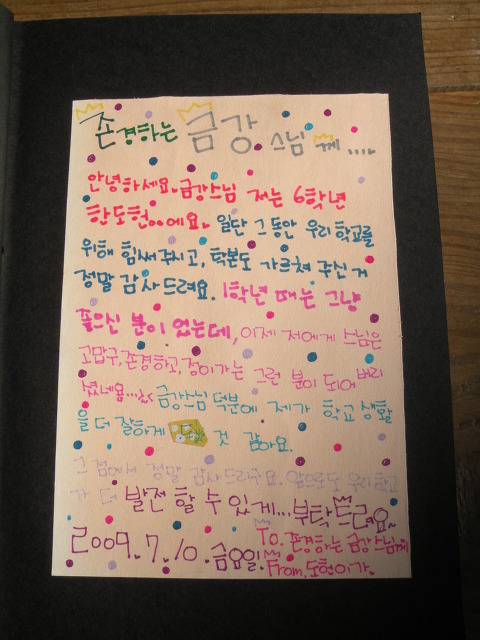 존경하는 금강 스님 께....
안녕하세요. 금강스님 저는 6학년
한도현..에요. 일단 그동안 우리 학교를
위해 힘써주시고, 학본도 가르쳐 주신 거
정말 감사드려요. 1학년 때는 그냥
좋으신 분이었는데, 이제 저에게 스님은
고맙구, 존경하고, 정이가는 그런 분이 되어 버리
셨네용...^^ 금강스님 덕분에 제가 학교 생활
을 더 잘하게 것 같아요.
그 점에서 정말 감사드리구요. 앞으로도 우리 학교
가 더 발전 할 수 있게... 부탁드려요~
2009.7.10.금요일. To. 존경하는 금강스님께
From. 도현이가.